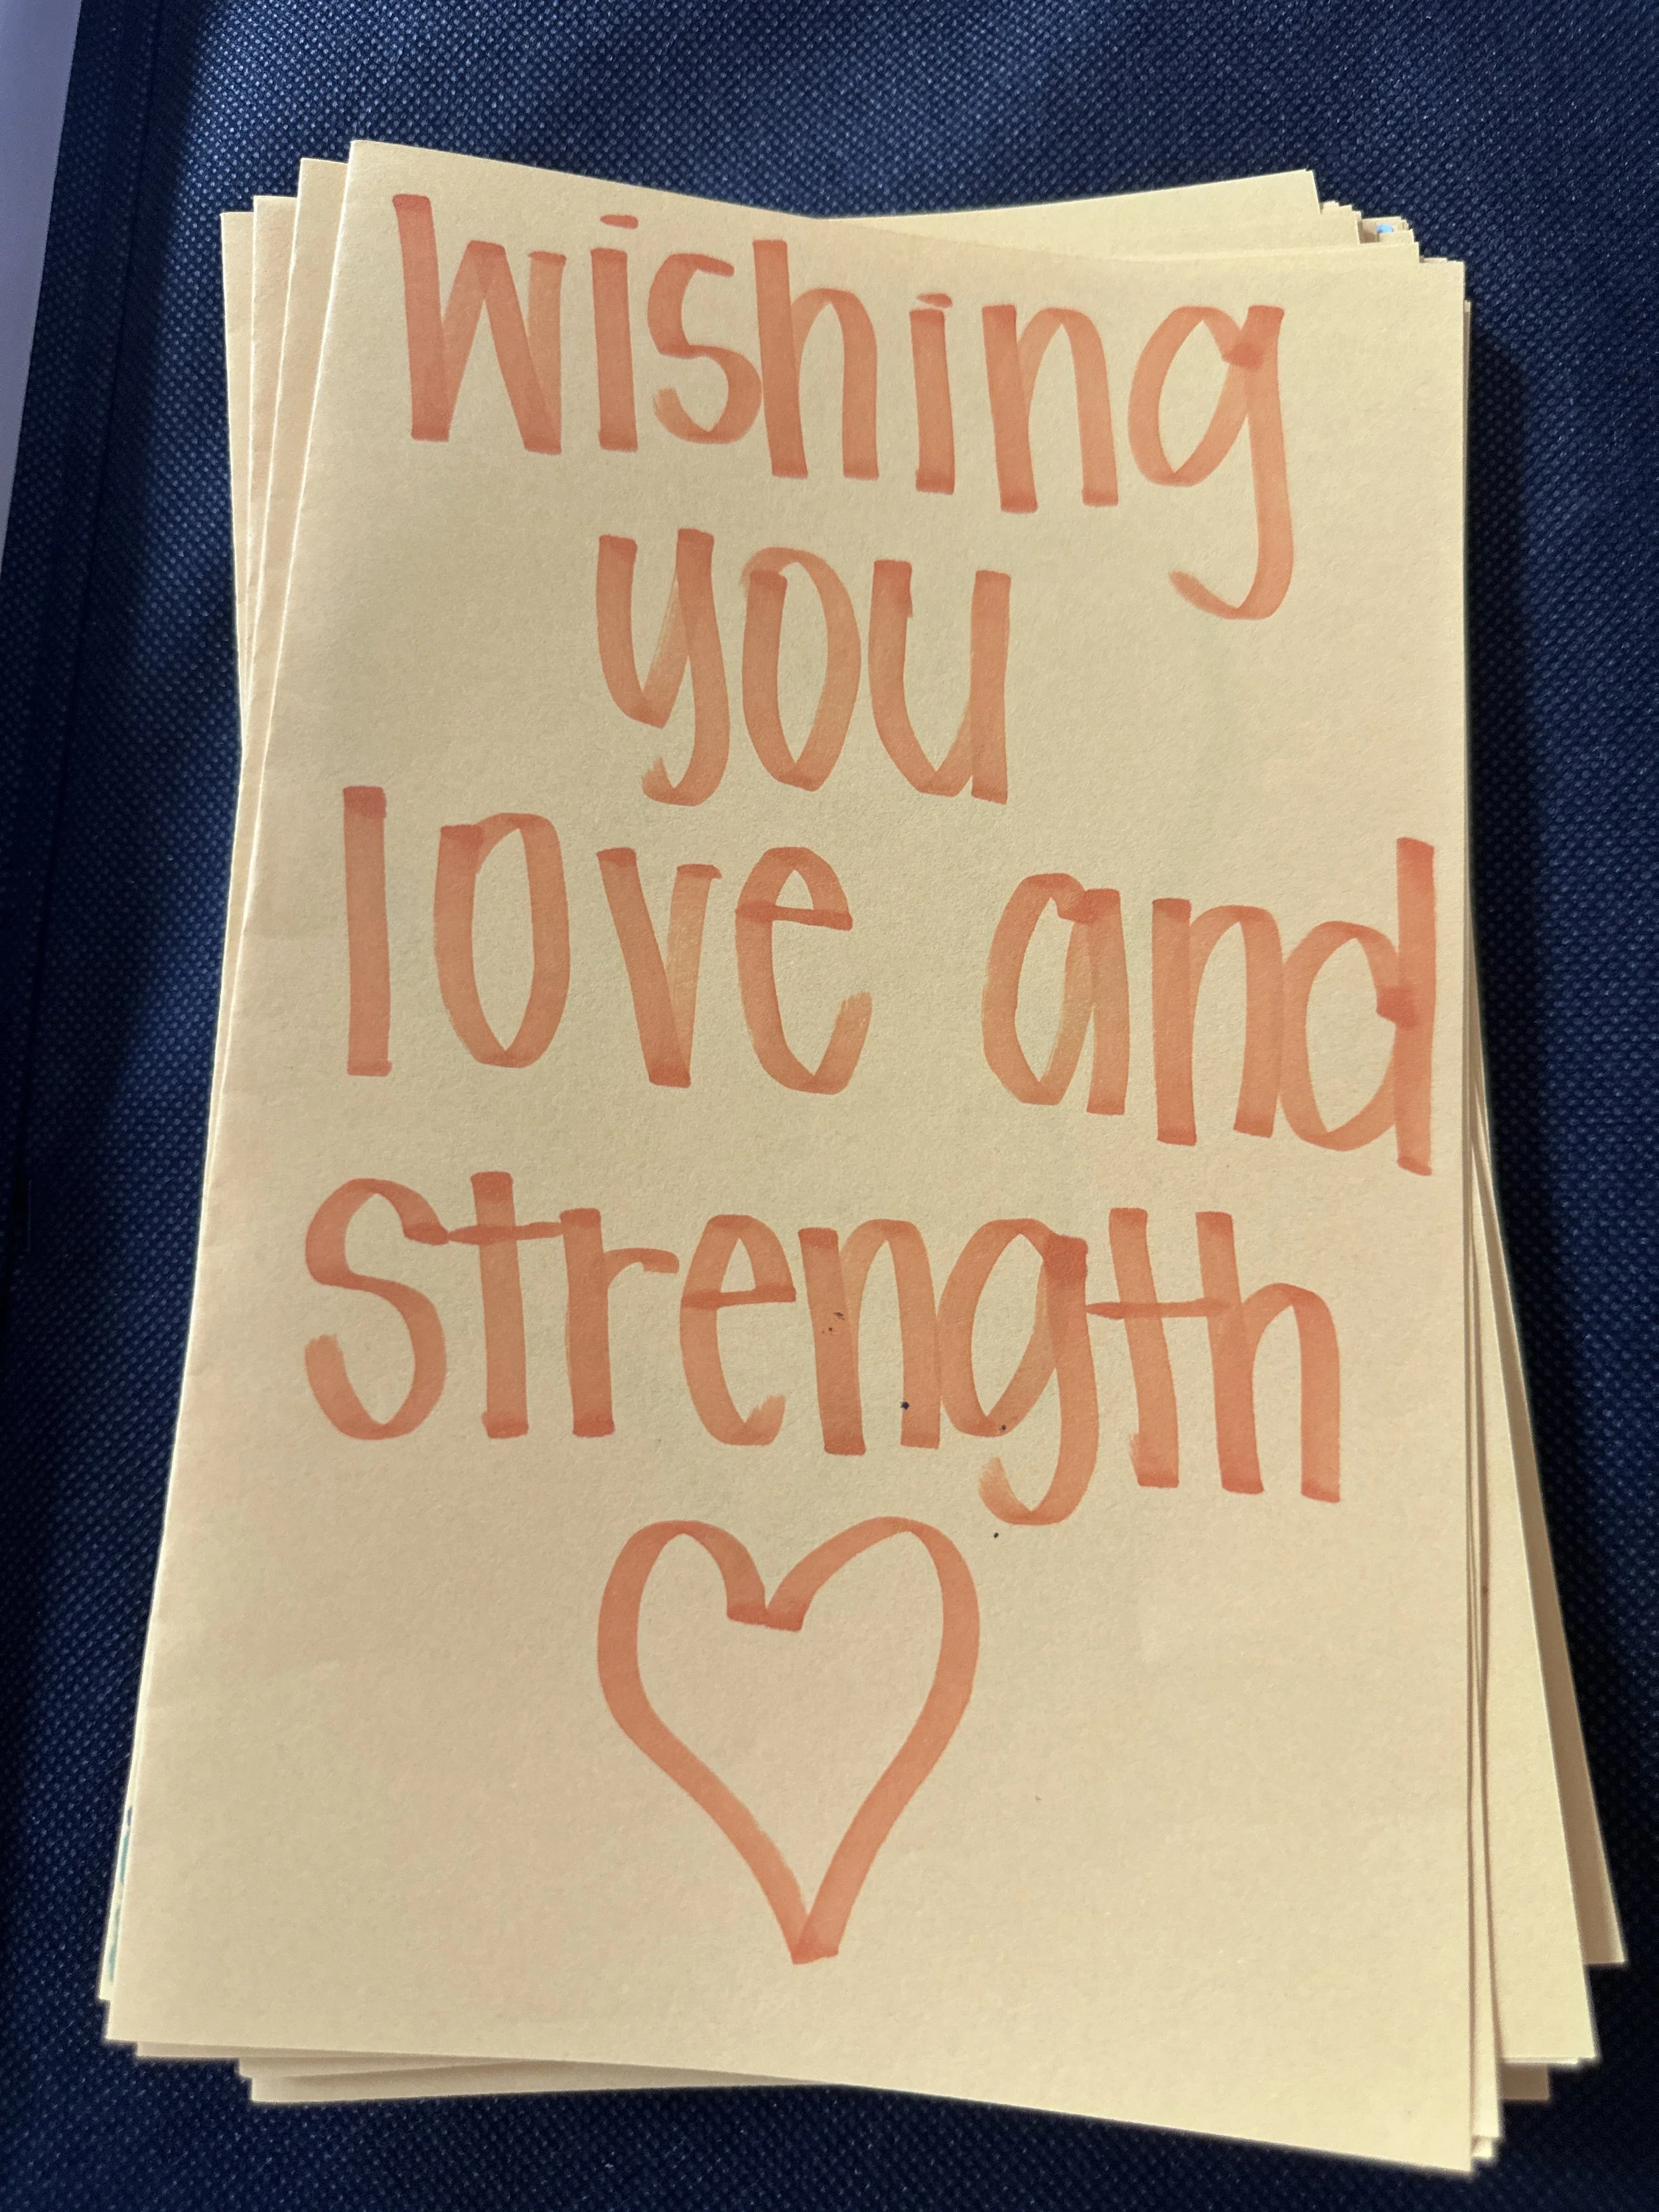 Wishing
you
love and
strength